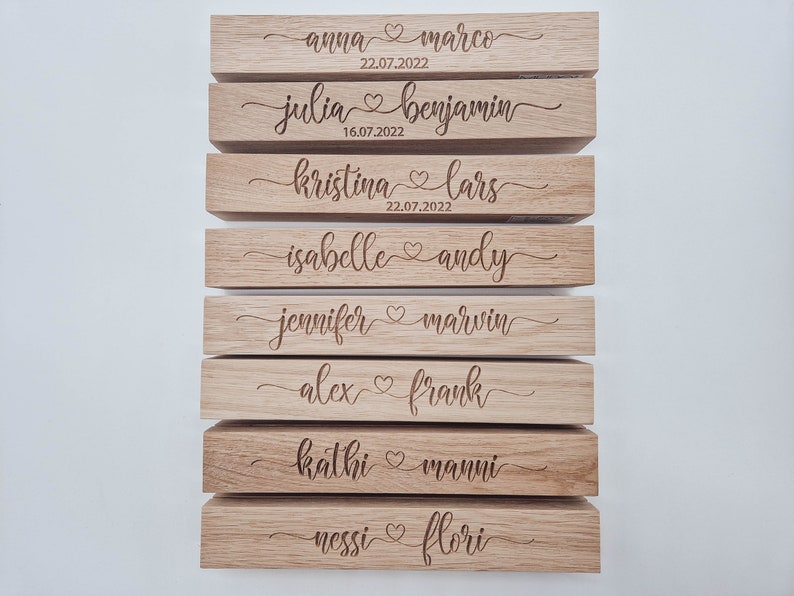 anna ♡ marco
22.07.2022
julia ♡ benjamin
16.07.2022
kristina ♡ lars
22.07.2022
isabelle ♡ andy
jennifer ♡ marvin
alex ♡ frank
kathi ♡ manni
nessi ♡ flori